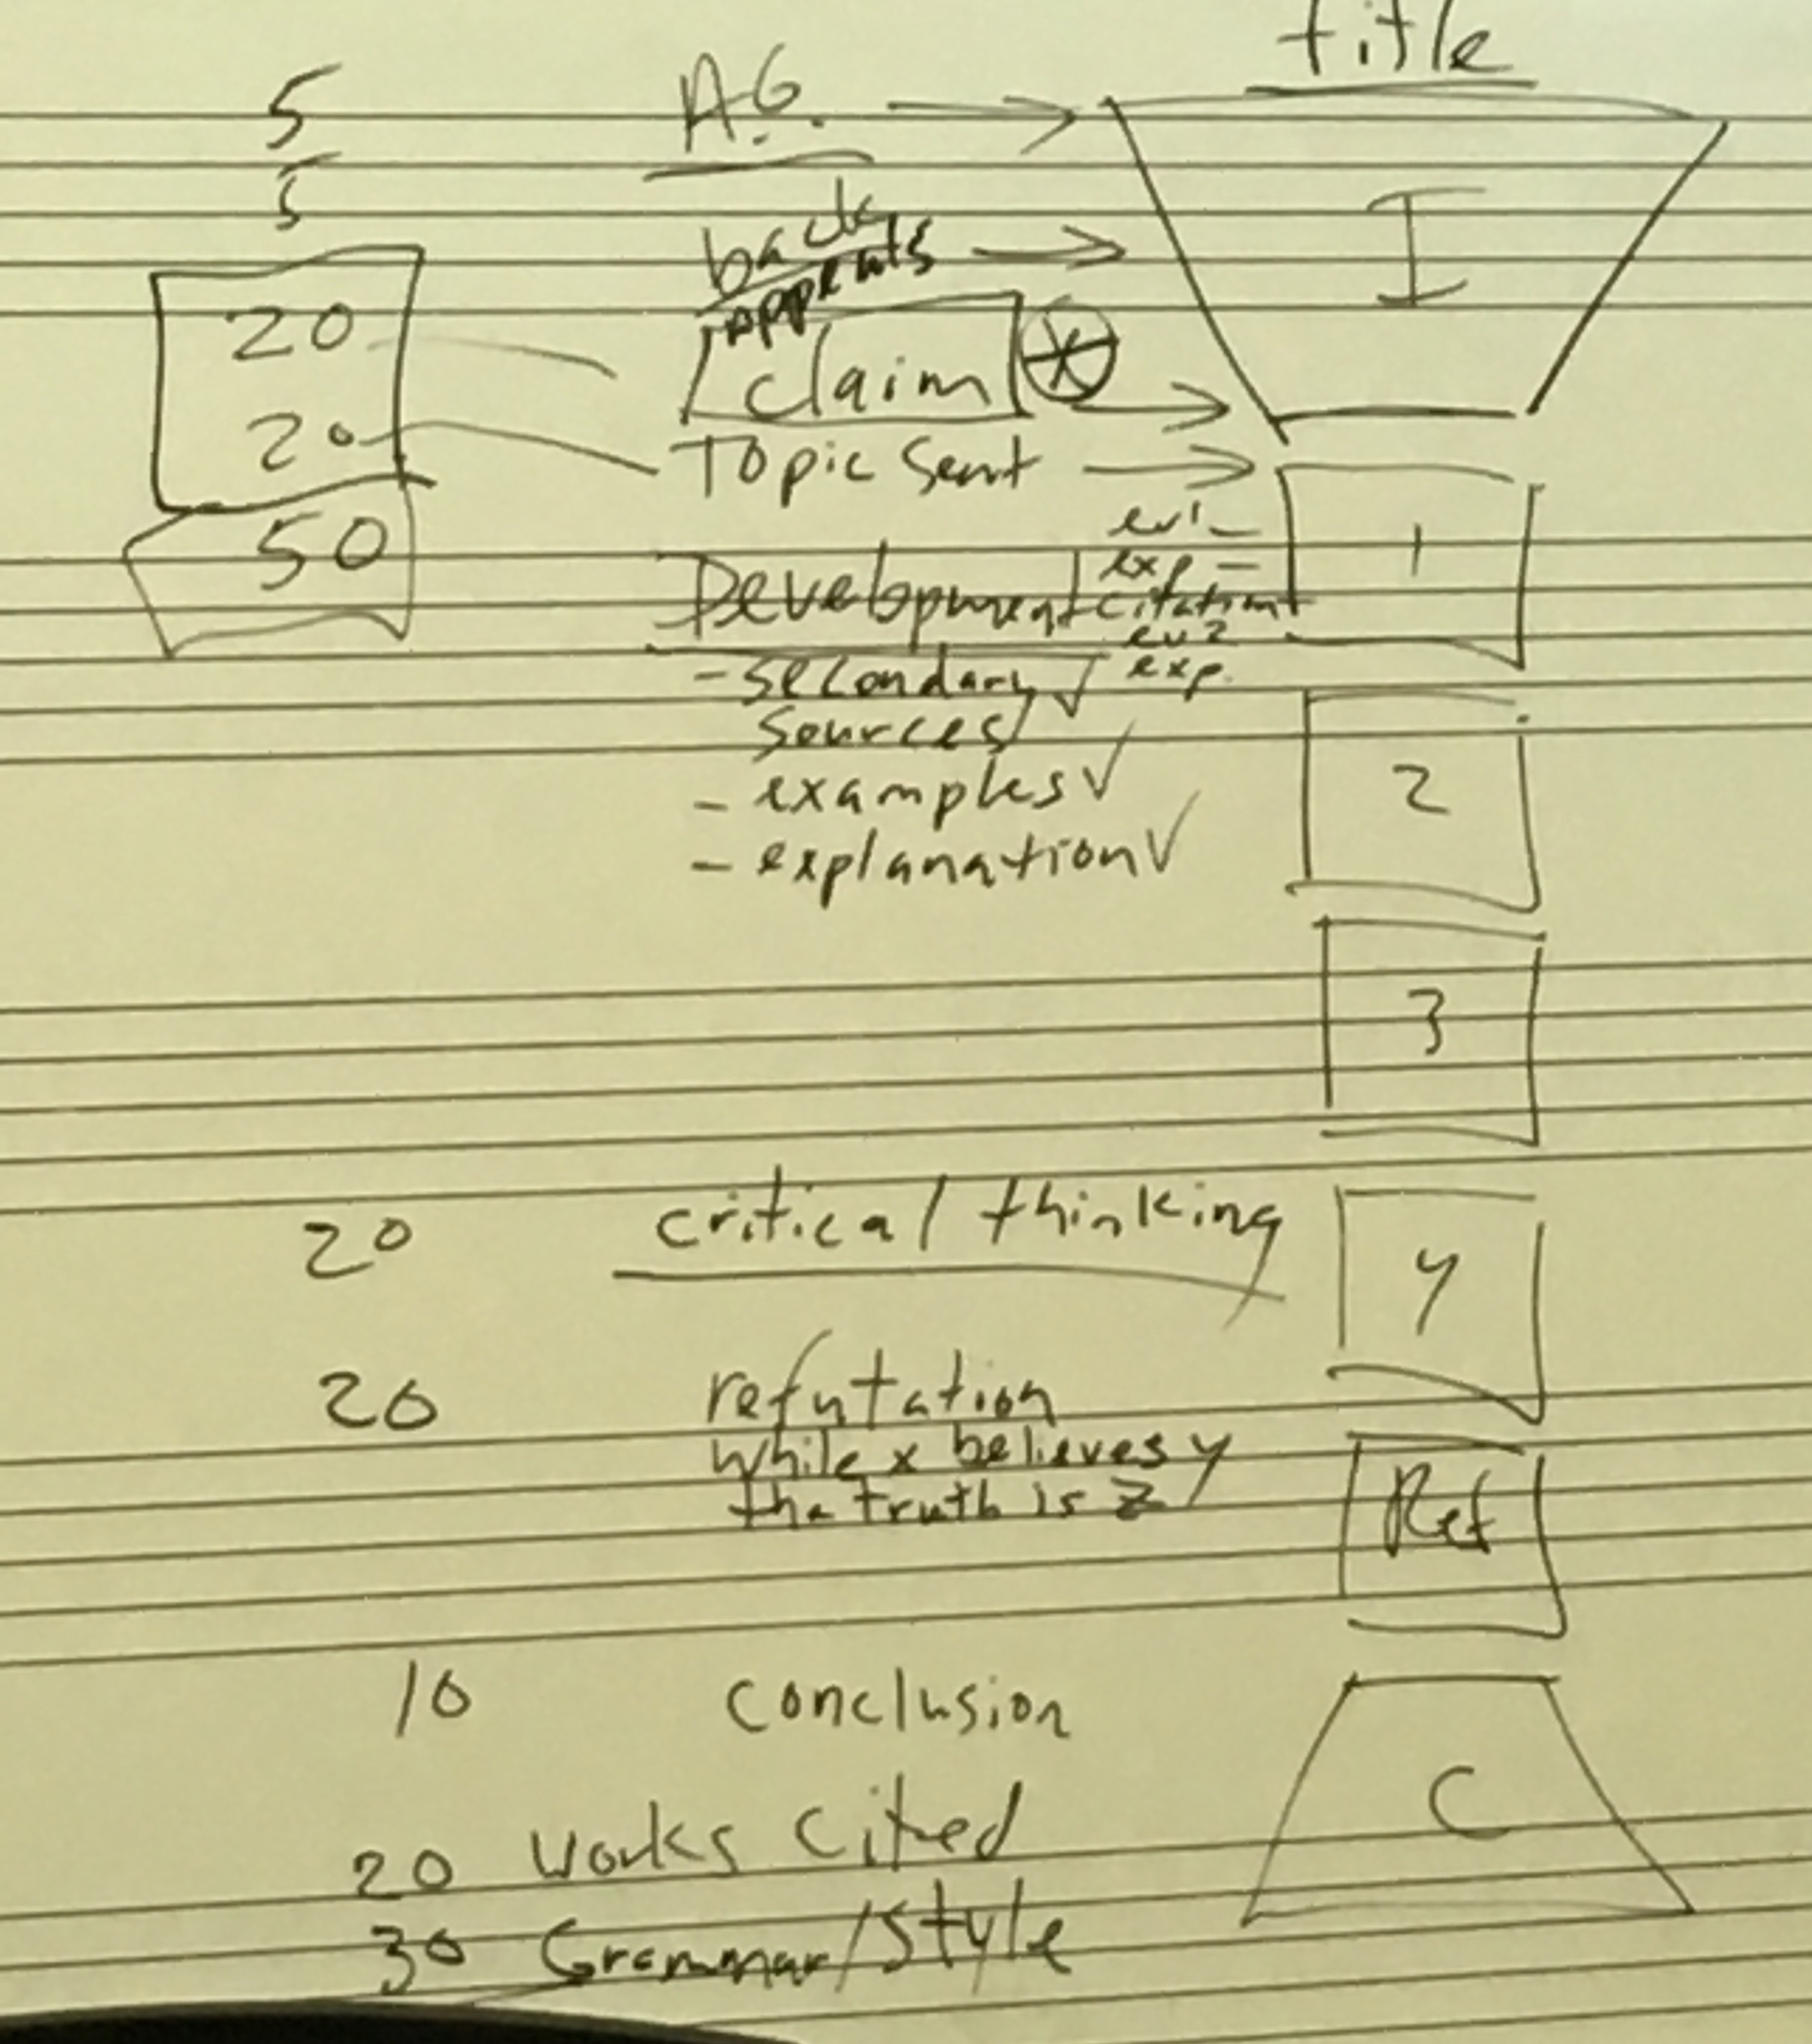 title
5 A.G.
I
5 back
opponents
20 claim
20 Topic Sent
ev1
50 Development exp 1
citation
ev2
- secondary exp.
sources
2
- examples
- explanation
3
20 critical thinking
4
20 refutation
while x believes y
the truth is z
Ref
10 conclusion
C
20 Works Cited
30 Grammar/Style